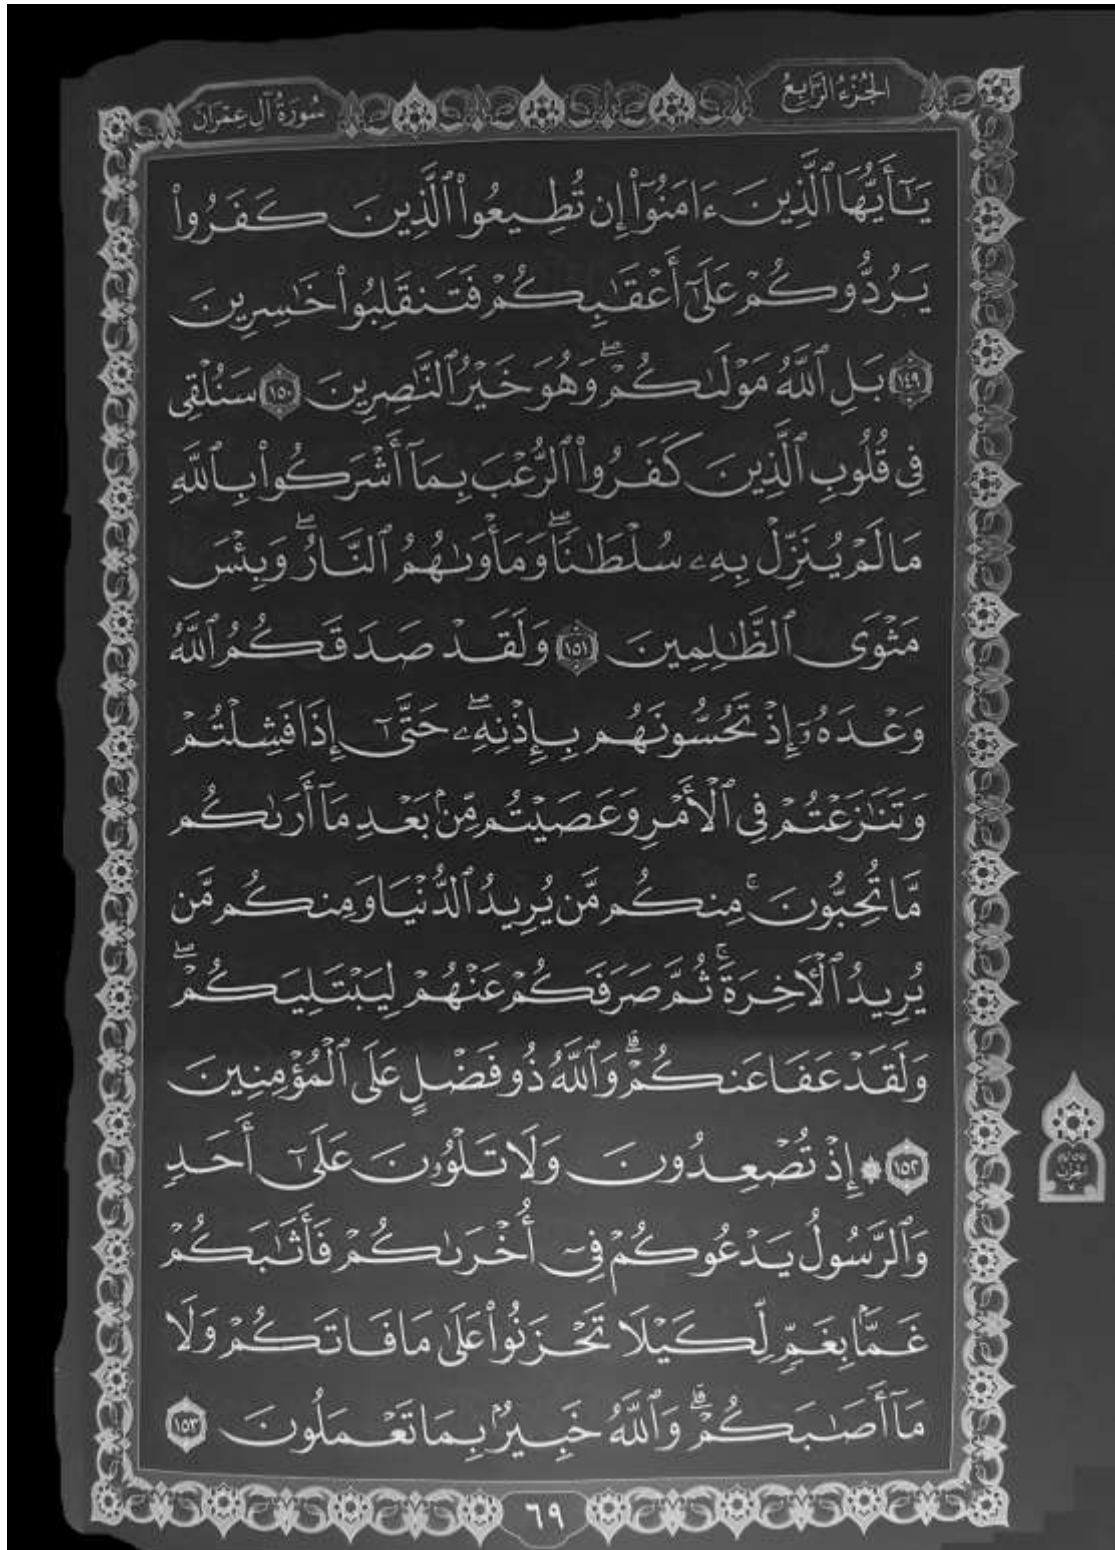 الجُزْءُ الرَّابِعُ
سُورَةُ آلِ عِمْرَانَ
يَـٰٓأَيُّهَا ٱلَّذِينَ ءَامَنُوٓا۟ إِن تُطِيعُوا۟ ٱلَّذِينَ كَفَرُوا۟
يَرُدُّوكُمْ عَلَىٰٓ أَعْقَـٰبِكُمْ فَتَنقَلِبُوا۟ خَـٰسِرِينَ
١٤٩ بَلِ ٱللَّهُ مَوْلَىٰكُمْ ۖ وَهُوَ خَيْرُ ٱلنَّـٰصِرِينَ ١٥٠ سَنُلْقِى
فِى قُلُوبِ ٱلَّذِينَ كَفَرُوا۟ ٱلرُّعْبَ بِمَآ أَشْرَكُوا۟ بِٱللَّهِ
مَا لَمْ يُنَزِّلْ بِهِۦ سُلْطَـٰنًا ۖ وَمَأْوَىٰهُمُ ٱلنَّارُ ۖ وَبِئْسَ
مَثْوَى ٱلظَّـٰلِمِينَ ١٥١ وَلَقَدْ صَدَقَكُمُ ٱللَّهُ
وَعْدَهُۥٓ إِذْ تَحُسُّونَهُم بِإِذْنِهِۦ ۖ حَتَّىٰٓ إِذَا فَشِلْتُمْ
وَتَنَـٰزَعْتُمْ فِى ٱلْأَمْرِ وَعَصَيْتُم مِّنۢ بَعْدِ مَآ أَرَىٰكُم
مَّا تُحِبُّونَ ۚ مِنكُم مَّن يُرِيدُ ٱلدُّنْيَا وَمِنكُم مَّن
يُرِيدُ ٱلْـَٔاخِرَةَ ۚ ثُمَّ صَرَفَكُمْ عَنْهُمْ لِيَبْتَلِيَكُمْ ۖ
وَلَقَدْ عَفَا عَنكُمْ ۗ وَٱللَّهُ ذُو فَضْلٍ عَلَى ٱلْمُؤْمِنِينَ
١٥٢ ۞ إِذْ تُصْعِدُونَ وَلَا تَلْوُۥنَ عَلَىٰٓ أَحَدٍ
وَٱلرَّسُولُ يَدْعُوكُمْ فِىٓ أُخْرَىٰكُمْ فَأَثَـٰبَكُمْ
غَمًّۢا بِغَمٍّ لِّكَيْلَا تَحْزَنُوا۟ عَلَىٰ مَا فَاتَكُمْ وَلَا
مَآ أَصَـٰبَكُمْ ۗ وَٱللَّهُ خَبِيرٌۢ بِمَا تَعْمَلُونَ ١٥٣
٦٩